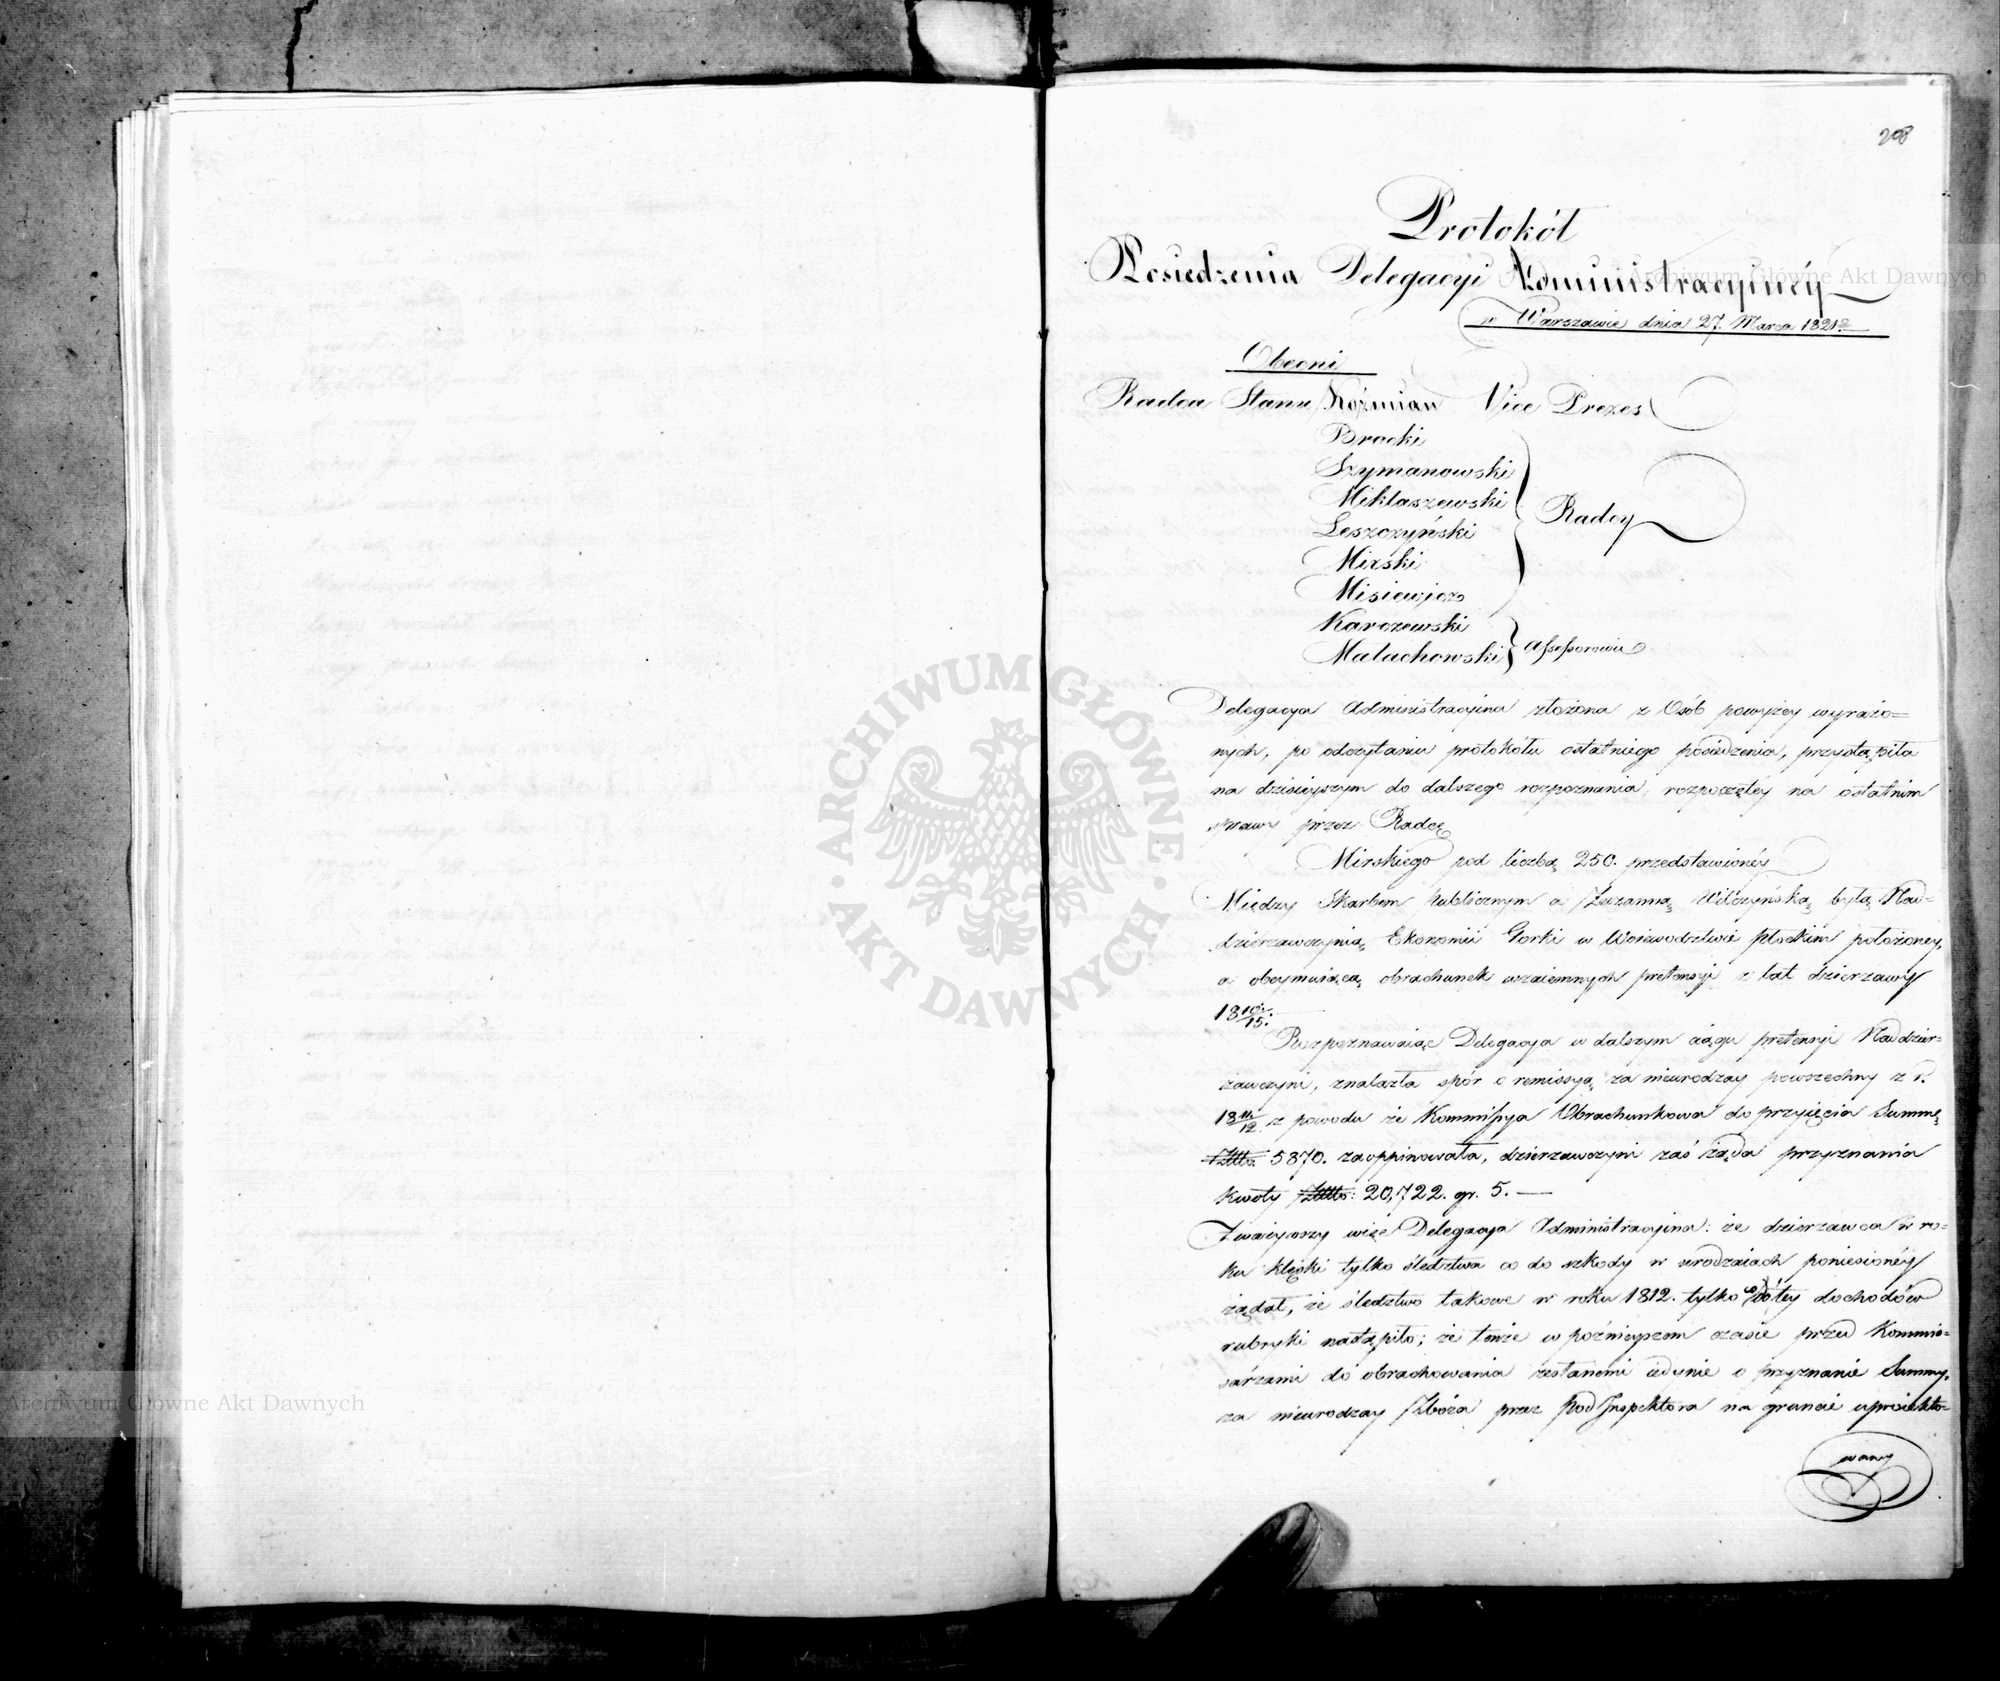 208
Protokół
Posiedzenia Delegacyi Administracyinéy
w Warszawie dnia 27. Marca 1821 r.
Obecni
Radca Stanu Koźmian Vice Prezes
Brocki
Szymanowski
Mikłaszewski
Leszczyński
Radcy
Mirski
Misiewicz
Karczewski
Małachowski
Assessorowie
Delegacya Administracyina złożona z Osób powyżey wyrażo=
nych, po odczytaniu protokółu ostatniego posiedzenia, przystąpiła
na dzisieyszym do dalszego rozpoznania, rozpoczętéy na ostatnim
sprawy przez Radcę
Mirskiego pod liczbą 250. przedstawionéy
Między Skarbem publicznym a Zuzanną Wilczyńską byłą Nad=
dzierzawczynią Ekonomii Gorki w Woiewodztwie płockim położoney,
a obeymuiącą obrachunek wzaiemnych pretensyi z lat dzierzawy
18 10/15.
Rozpoznawaiąc Delegacya w dalszym ciągu pretensyi Naddzier=
zawczyni, znalazła spór o remissyą za nieurodzay powszechny z r.
18 11/12. z powodu że Kommissya Obrachunkowa do przyięcia Summę
Złtto. 5870. zaoppiniowała, dzierzawczyni zaś żąda przyznania
kwoty Złtto: 20,722. gr. 5. —
Zważywszy więc Delegacya Administracyina: że dzierzawca w ro=
ku klęski tylko śledztwa co do szkody w urodzaiach poniesionéy
żądał, że śledztwo takowe w roku 1812. tylko co do téy dochodów
rubryki nastąpiło; że tenże w poźnieyszem czasie przed Kommis=
sarzami do obrachowania zesłanemi iedynie o przyznanie Summy,
za nieurodzay Zboża przez Pod Inspektora na gruncie uproiekto=
wany
ARCHIWUM GŁÓWNE · AKT DAWNYCH ·
Archiwum Główne Akt Dawnych
Archiwum Główne Akt Dawnych